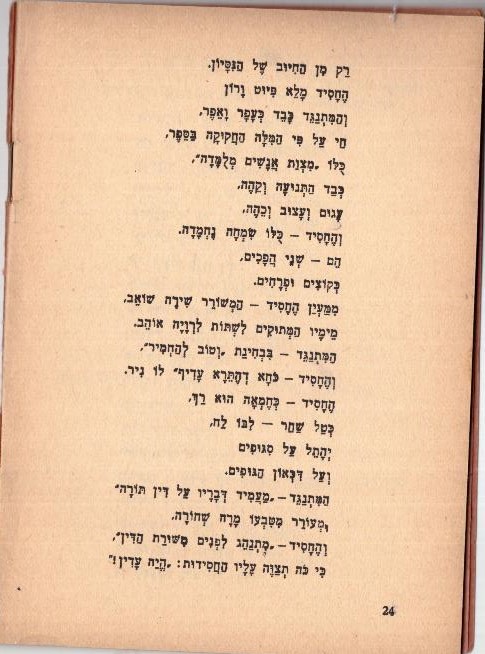 רַק מִן הַחִיּוּב שֶׁל הַנִּסָּיוֹן.
הֶחָסִיד מָלֵא פִּיּוּט וָרוֹן
וְהַמִּתְנַגֵּד כָּבֵד כְּעָפָר וָאֵפֶר,
חַי עַל פִּי הַמִּלָּה הַחֲקוּקָה בַּסֵּפֶר,
כֻּלּוֹ „מִצְוַת אֲנָשִׁים מְלֻמָּדָה”,
כְּבַד הַתְּנוּעָה וְקֵהֶה,
עָגוּם וְעָצוּב וְכֵהֶה,
וְהֶחָסִיד – כֻּלּוֹ שִׂמְחָה נֶחְמָדָה.
הֵם – שְׁנֵי הֲפָכִים,
כְּקוֹצִים וּפְרָחִים.
מִמַּעְיַן הֶחָסִיד – הַמְשׁוֹרֵר שִׁירָה שׁוֹאֵב,
מֵימָיו הַמְּתוּקִים לִשְׁתּוֹת לִרְוָיָה אוֹהֵב.
הַמִּתְנַגֵּד – בִּבְחִינַת „וְטוֹב לְהַחְמִיר”,
וְהֶחָסִיד – כֹּחָא דְהֶתֵּרָא עָדִיף” לוֹ נִיר.
הֶחָסִיד – כְּחֶמְאָה הוּא רַךְ,
כְּטַל שַׁחַר – לִבּוֹ לַח,
יְהַתֵּל עַל סִגּוּפִים
וְעַל דִּכְּאוֹן הַגּוּפִים.
הַמִּתְנַגֵּד – „מַעֲמִיד דְּבָרָיו עַל דִּין תּוֹרָה”
וּמְעוֹרֵר מִטִּבְעוֹ מָרָה שְׁחוֹרָה,
וְהֶחָסִיד – „מִתְנַהֵג לִפְנִים מִשּׁוּרַת הַדִּין”,
כִּי כֹּה תְצַוֶּה עָלָיו הַחֲסִידוּת: „הֱיֵה עָדִין!”
24